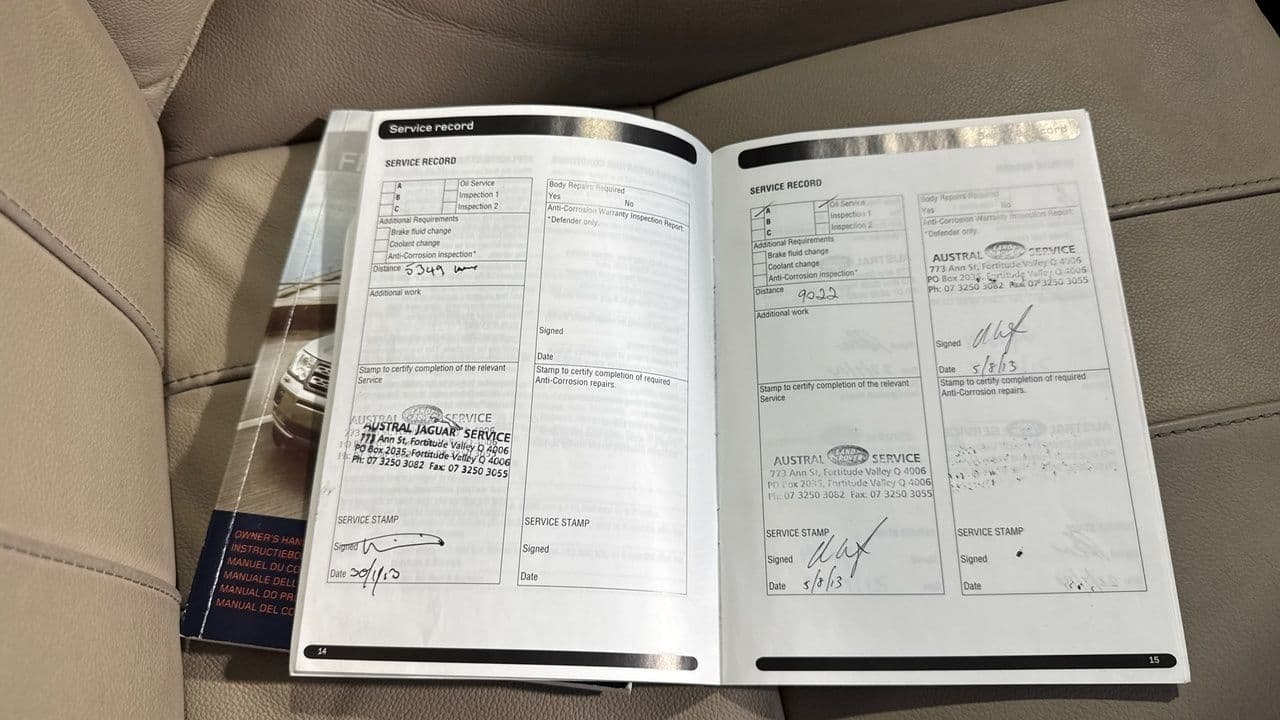 Service record
SERVICE RECORD
A
B
C
Oil Service
Inspection 1
Inspection 2
Additional Requirements
Brake fluid change
Coolant change
Anti-Corrosion inspection*
Distance 5349 km
Additional work
Stamp to certify completion of the relevant
Service
AUSTRAL LAND ROVER SERVICE
AUSTRAL JAGUAR SERVICE
773 Ann St, Fortitude Valley Q 4006
PO Box 2035, Fortitude Valley Q 4006
Ph: 07 3250 3082 Fax: 07 3250 3055
SERVICE STAMP
Signed
Date 30/1/13
Body Repairs Required
Yes No
Anti-Corrosion Warranty Inspection Report:
*Defender only.
Signed
Date
Stamp to certify completion of required
Anti-Corrosion repairs.
SERVICE STAMP
Signed
Date
14
Service record
SERVICE RECORD
A
B
C
Oil Service
Inspection 1
Inspection 2
Additional Requirements
Brake fluid change
Coolant change
Anti-Corrosion inspection*
Distance 9022
Additional work
Stamp to certify completion of the relevant
Service
AUSTRAL LAND ROVER SERVICE
773 Ann St, Fortitude Valley Q 4006
PO Box 2035, Fortitude Valley Q 4006
Ph: 07 3250 3082 Fax: 07 3250 3055
SERVICE STAMP
Signed
Date 5/8/13
Body Repairs Required
Yes No
Anti-Corrosion Warranty Inspection Report:
*Defender only.
AUSTRAL LAND ROVER SERVICE
773 Ann St, Fortitude Valley Q 4006
PO Box 2035, Fortitude Valley Q 4006
Ph: 07 3250 3082 Fax: 07 3250 3055
Signed
Date 5/8/13
Stamp to certify completion of required
Anti-Corrosion repairs.
SERVICE STAMP
Signed
Date
15
OWNER'S HAN
INSTRUCTIEBO
MANUEL DU CO
MANUALE DELL
MANUAL DO PR
MANUAL DEL CO